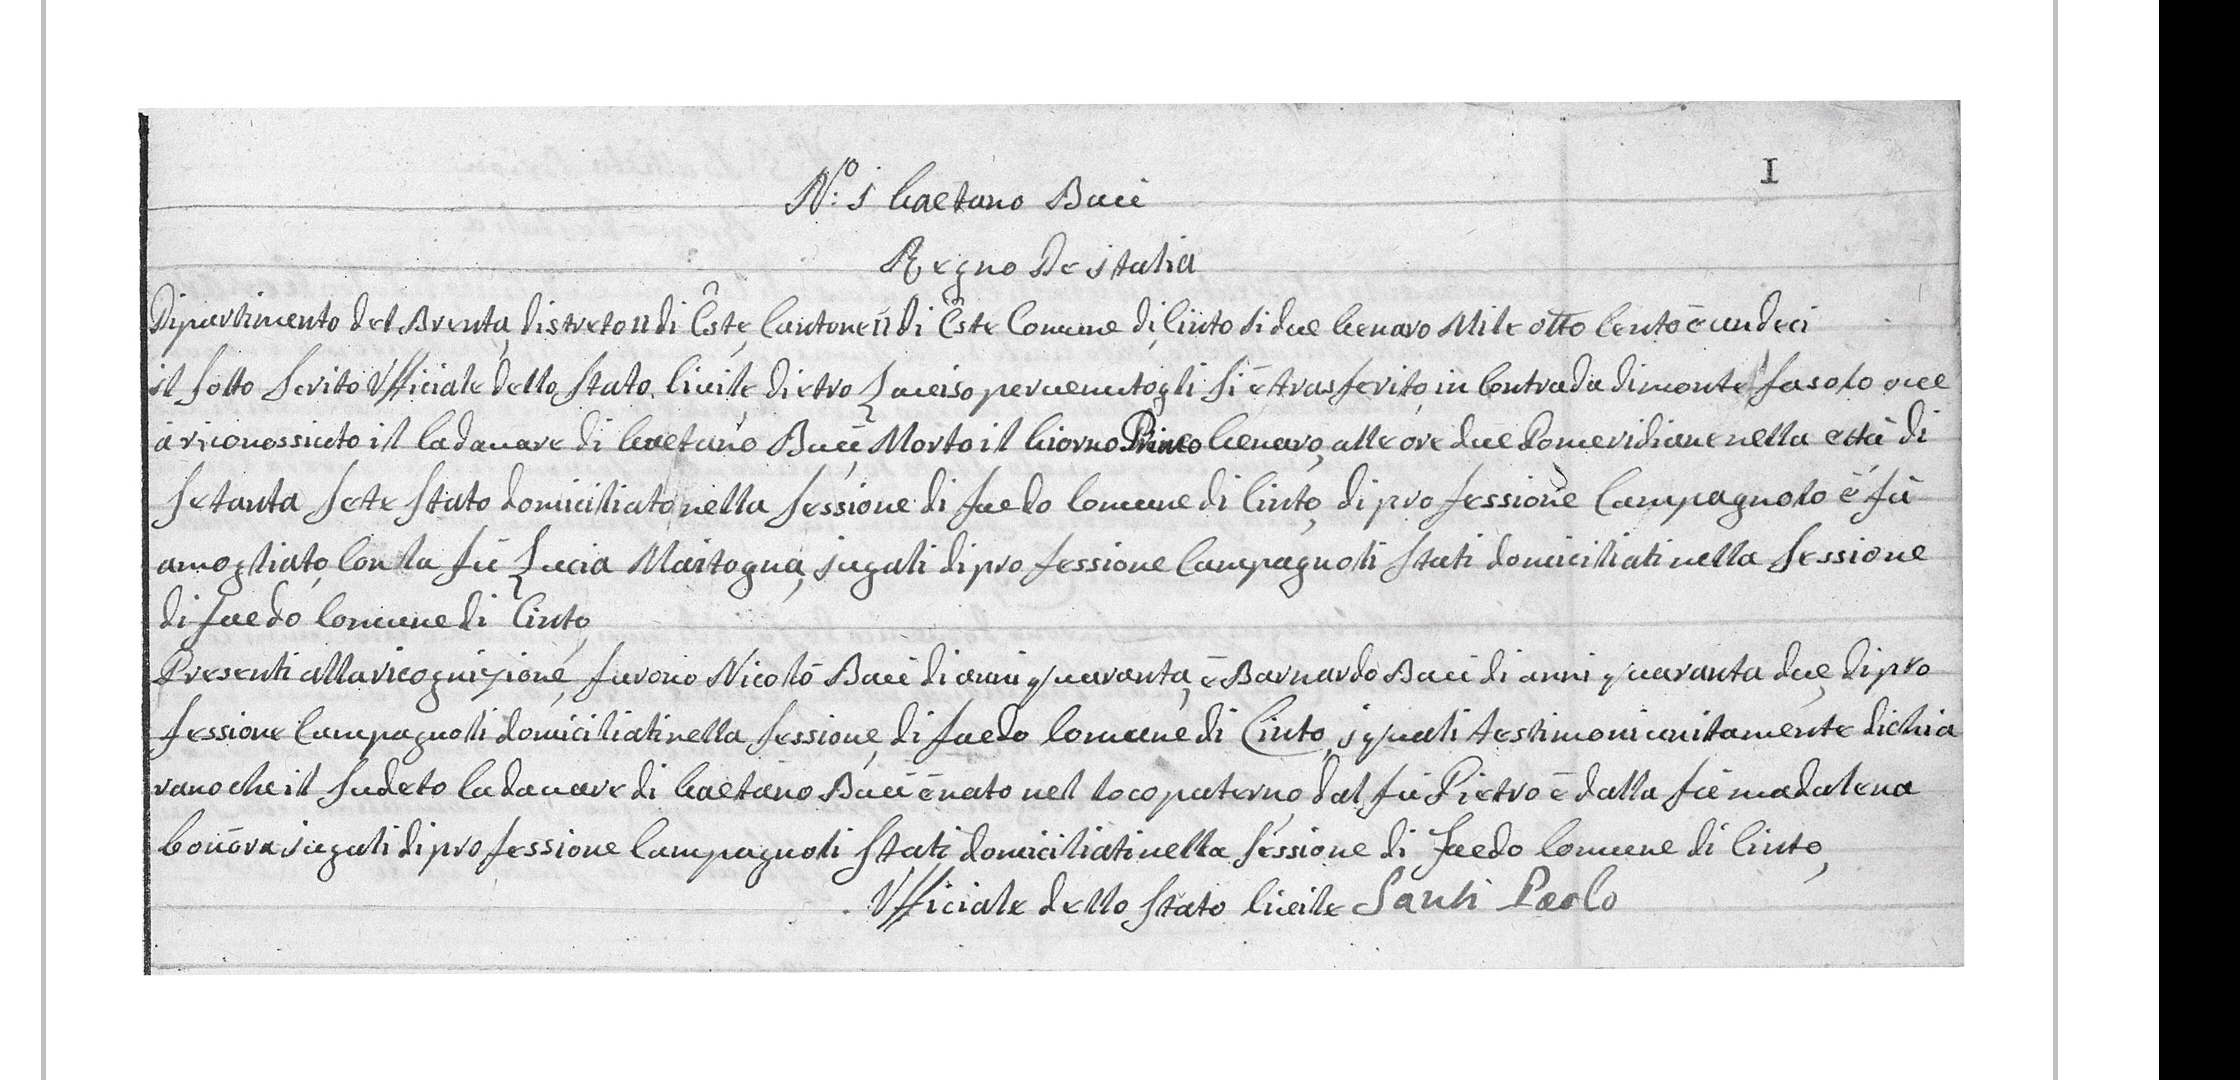 I
N.º 1 Gaetano Bucè
Regno De italia
Dipartimento del Brenta, distreto II di Este, Cantone II di Este Comune di, Cinto li due Genaro Mile otto Cento è undeci
il sotto scrito Ufficiale dello stato Civile dietro L'aviso pervenutogli si è trasferito, in Contrada di monte fasolo ove
à riconossiuto il Cadavare di Gaetano Bucè, Morto il Giorno Primo Genaro, alle ore due Pomeridiane nella età di
setanta sete stato domiciliato nella sessione di faedo Comune di Cinto, di professione Campagnolo è fù
amogliato, Con la fù Lucia Maitogna, jugali di professione Campagnoli stati domiciliati nella sessione
di faedo Comune di Cinto,
Presenti alla ricognizione, furono Nicolò Buci di anni quaranta, è Barnardo Buci di anni quaranta due, di pro
fessione Campagnoli domiciliati nella sessione, di faedo Comune di Cinto, i quali testimoni unitamente dichia
rano che il sudeto Cadavare di Gaetano Bucè è nato nel loco paterno, dal fù Pietro è dalla fù madalena
bonora jugali di professione Campagnoli stati domiciliati nella sessione di faedo Comune di Cinto,
Ufficiale dello stato Civile Santi Paolo